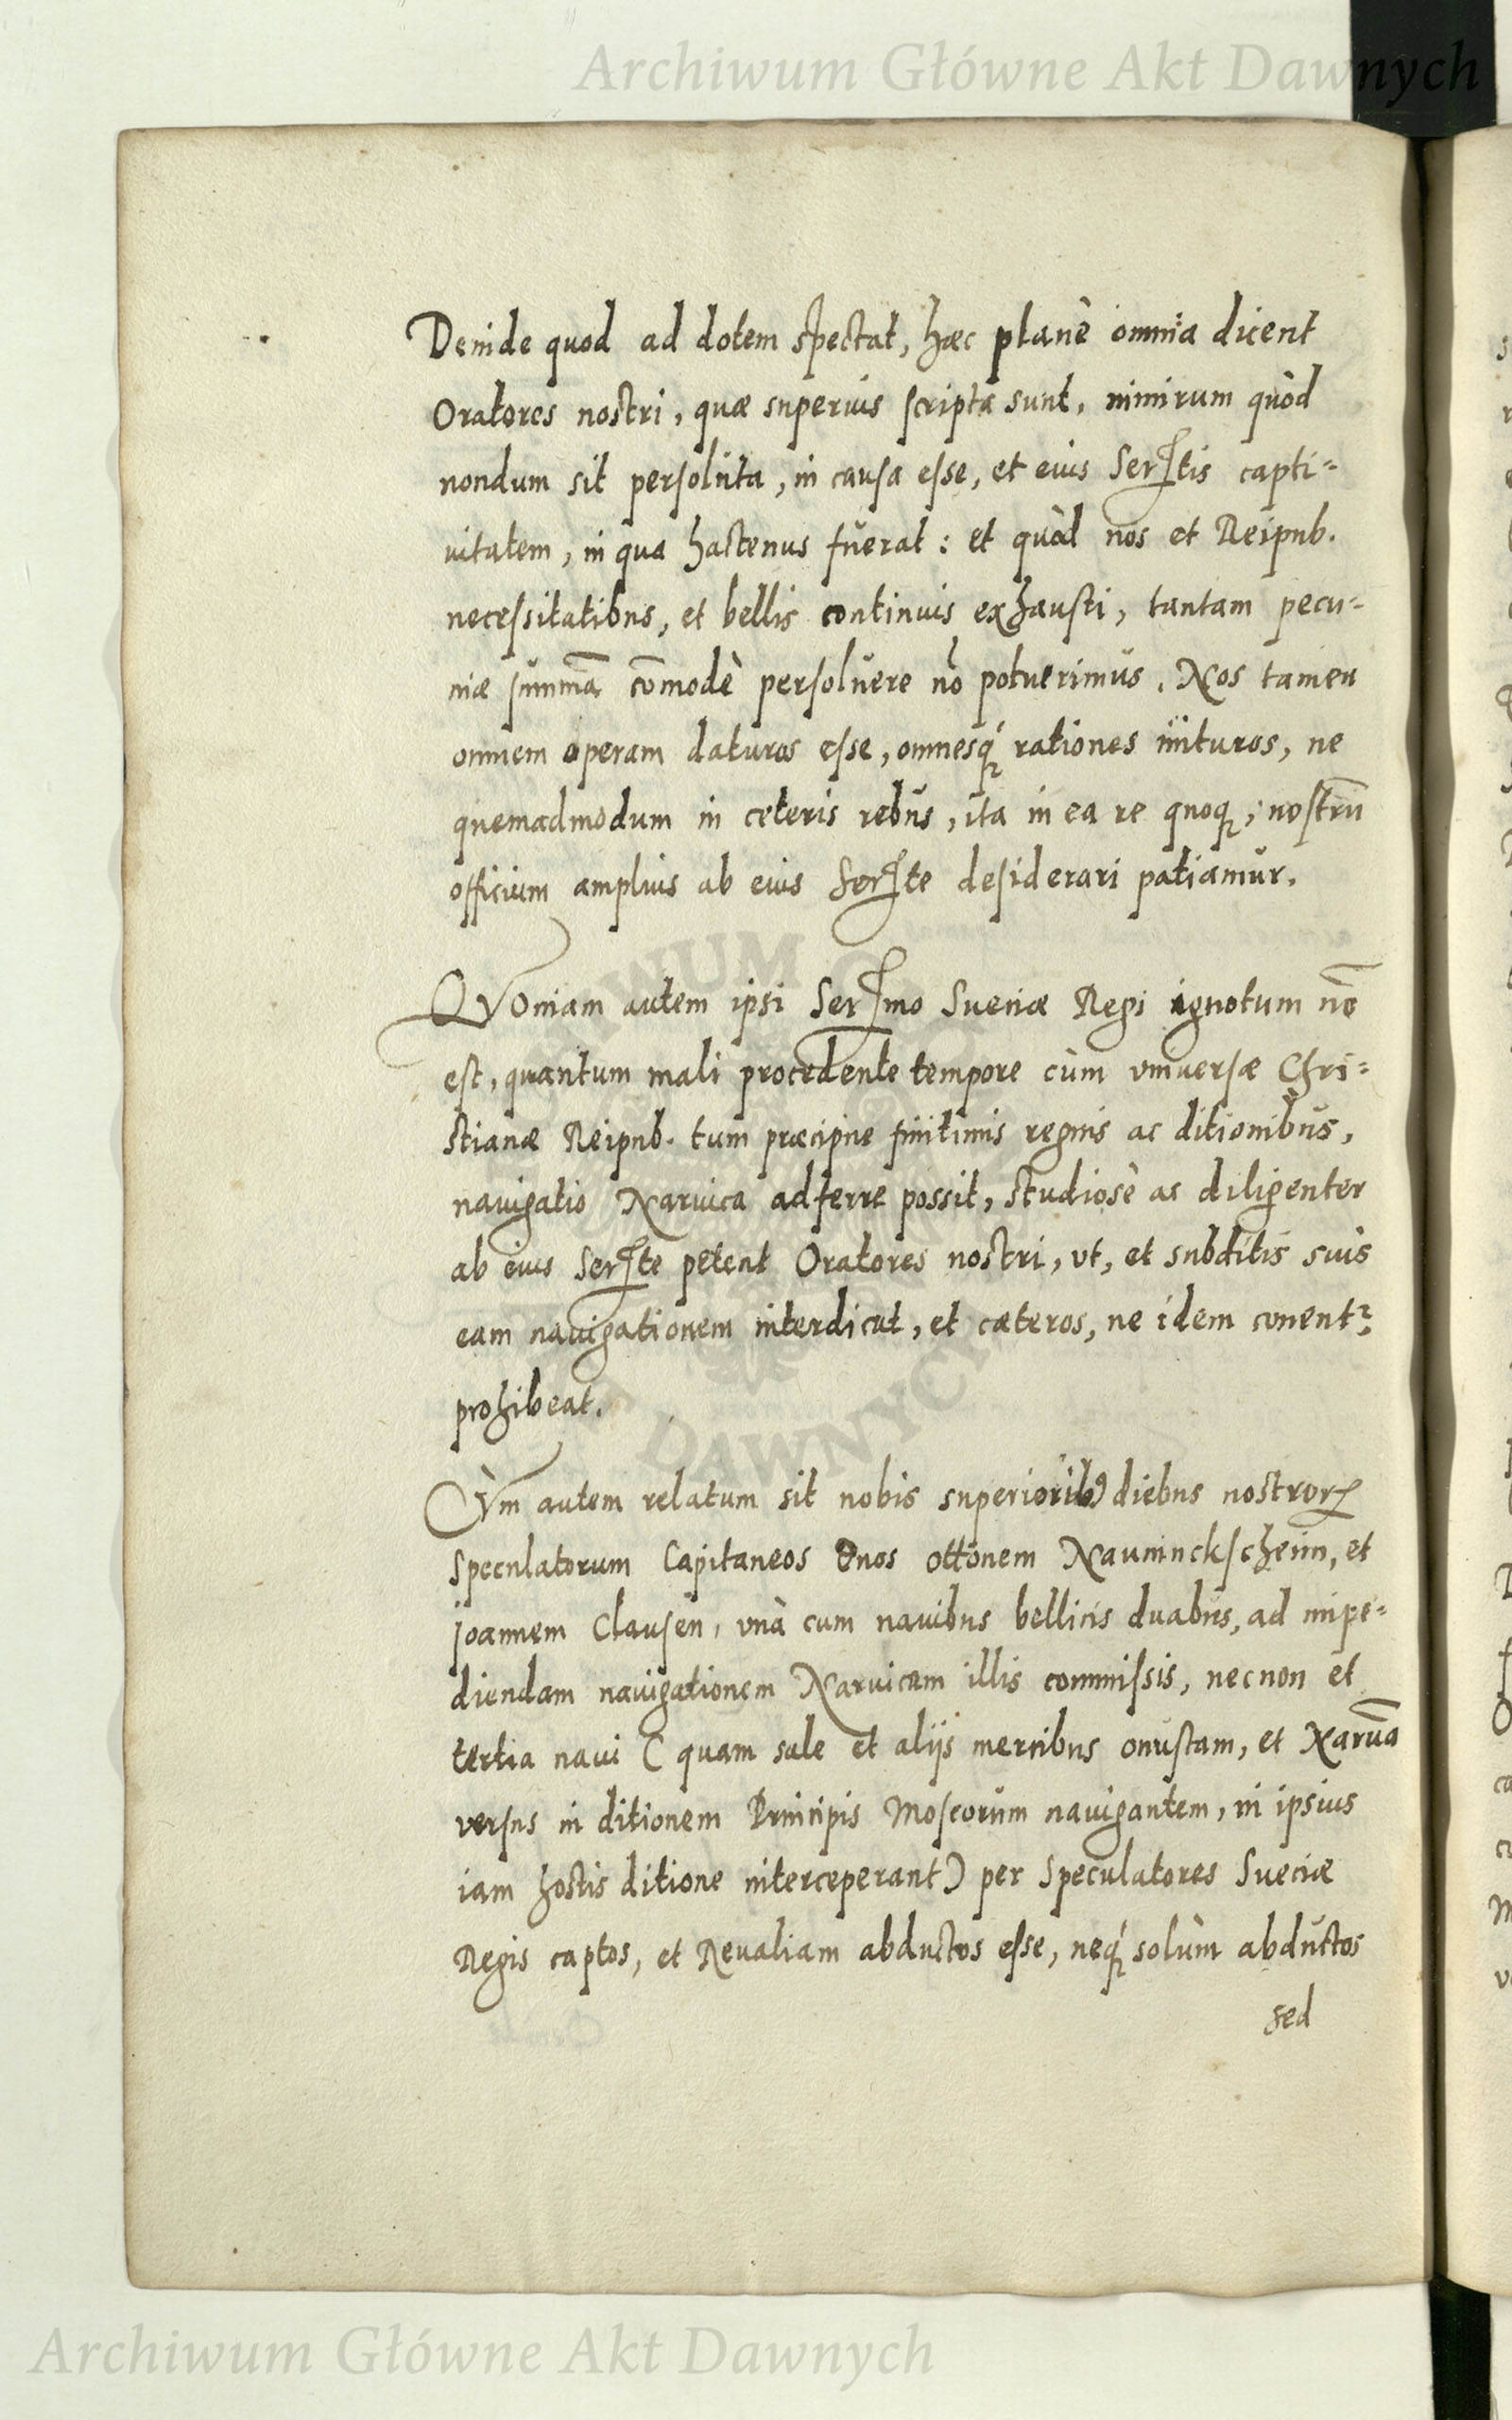 Archiwum Główne Akt Dawnych
Deinde quod ad dotem spectat, hæc planè omnia dicent
Oratores nostri, quæ superius scripta sunt, nimirum quòd
nondum sit persoluta, in causa esse, et eius Serᵗᵗis capti=
uitatem, in qua hactenus fuerat: et quòd nos et Reipub.
necessitatibus, et bellis continuis exhausti, tantam pecu-
niæ summā cōmodè persoluere nō potuerimus. Nos tamen
omnem operam daturos esse, omnesq́ꝫ rationes inituros, ne
quemadmodum in ceteris rebus, ita in ea re quoqꝫ; nostrū
officium amplius ab eius Serᵗᵗte desiderari patiamur.
QVOniam autem ipsi Serᵐmo Sueciæ Regi ignotum nō
est, quantum mali procedente tempore cùm vniuersæ Chri=
stianæ Reipub. tum præcipue finitimis regnis ac ditionibus,
nauigatio Naruica adferre possit, studiosè ac diligenter
ab eius Serᵗᵗte petent Oratores nostri, vt, et subditis suis
eam nauigationem interdicat, et cæteros, ne idem conentꝛ,
prohibeat.
CÙm autem relatum sit nobis superioribꝰ diebus nostrorꝝ
Speculatorum Capitaneos Dnos Ottonem Nauninckscheim, et
Joannem Clausen, vnà cum nauibus bellicis duabus, ad impe=
diendam nauigationem Naruicam illis commissis, necnon et
tertia naui (quam sale et alijs mercibus onustam, et Naruā
versus in ditionem Principis Moscorum nauigantem, in ipsius
iam hostis ditione interceperant) per Speculatores Sueciæ
Regis captos, et Reualiam abductos esse, neq́ꝫ solùm abductos
sed
Archiwum Główne Akt Dawnych